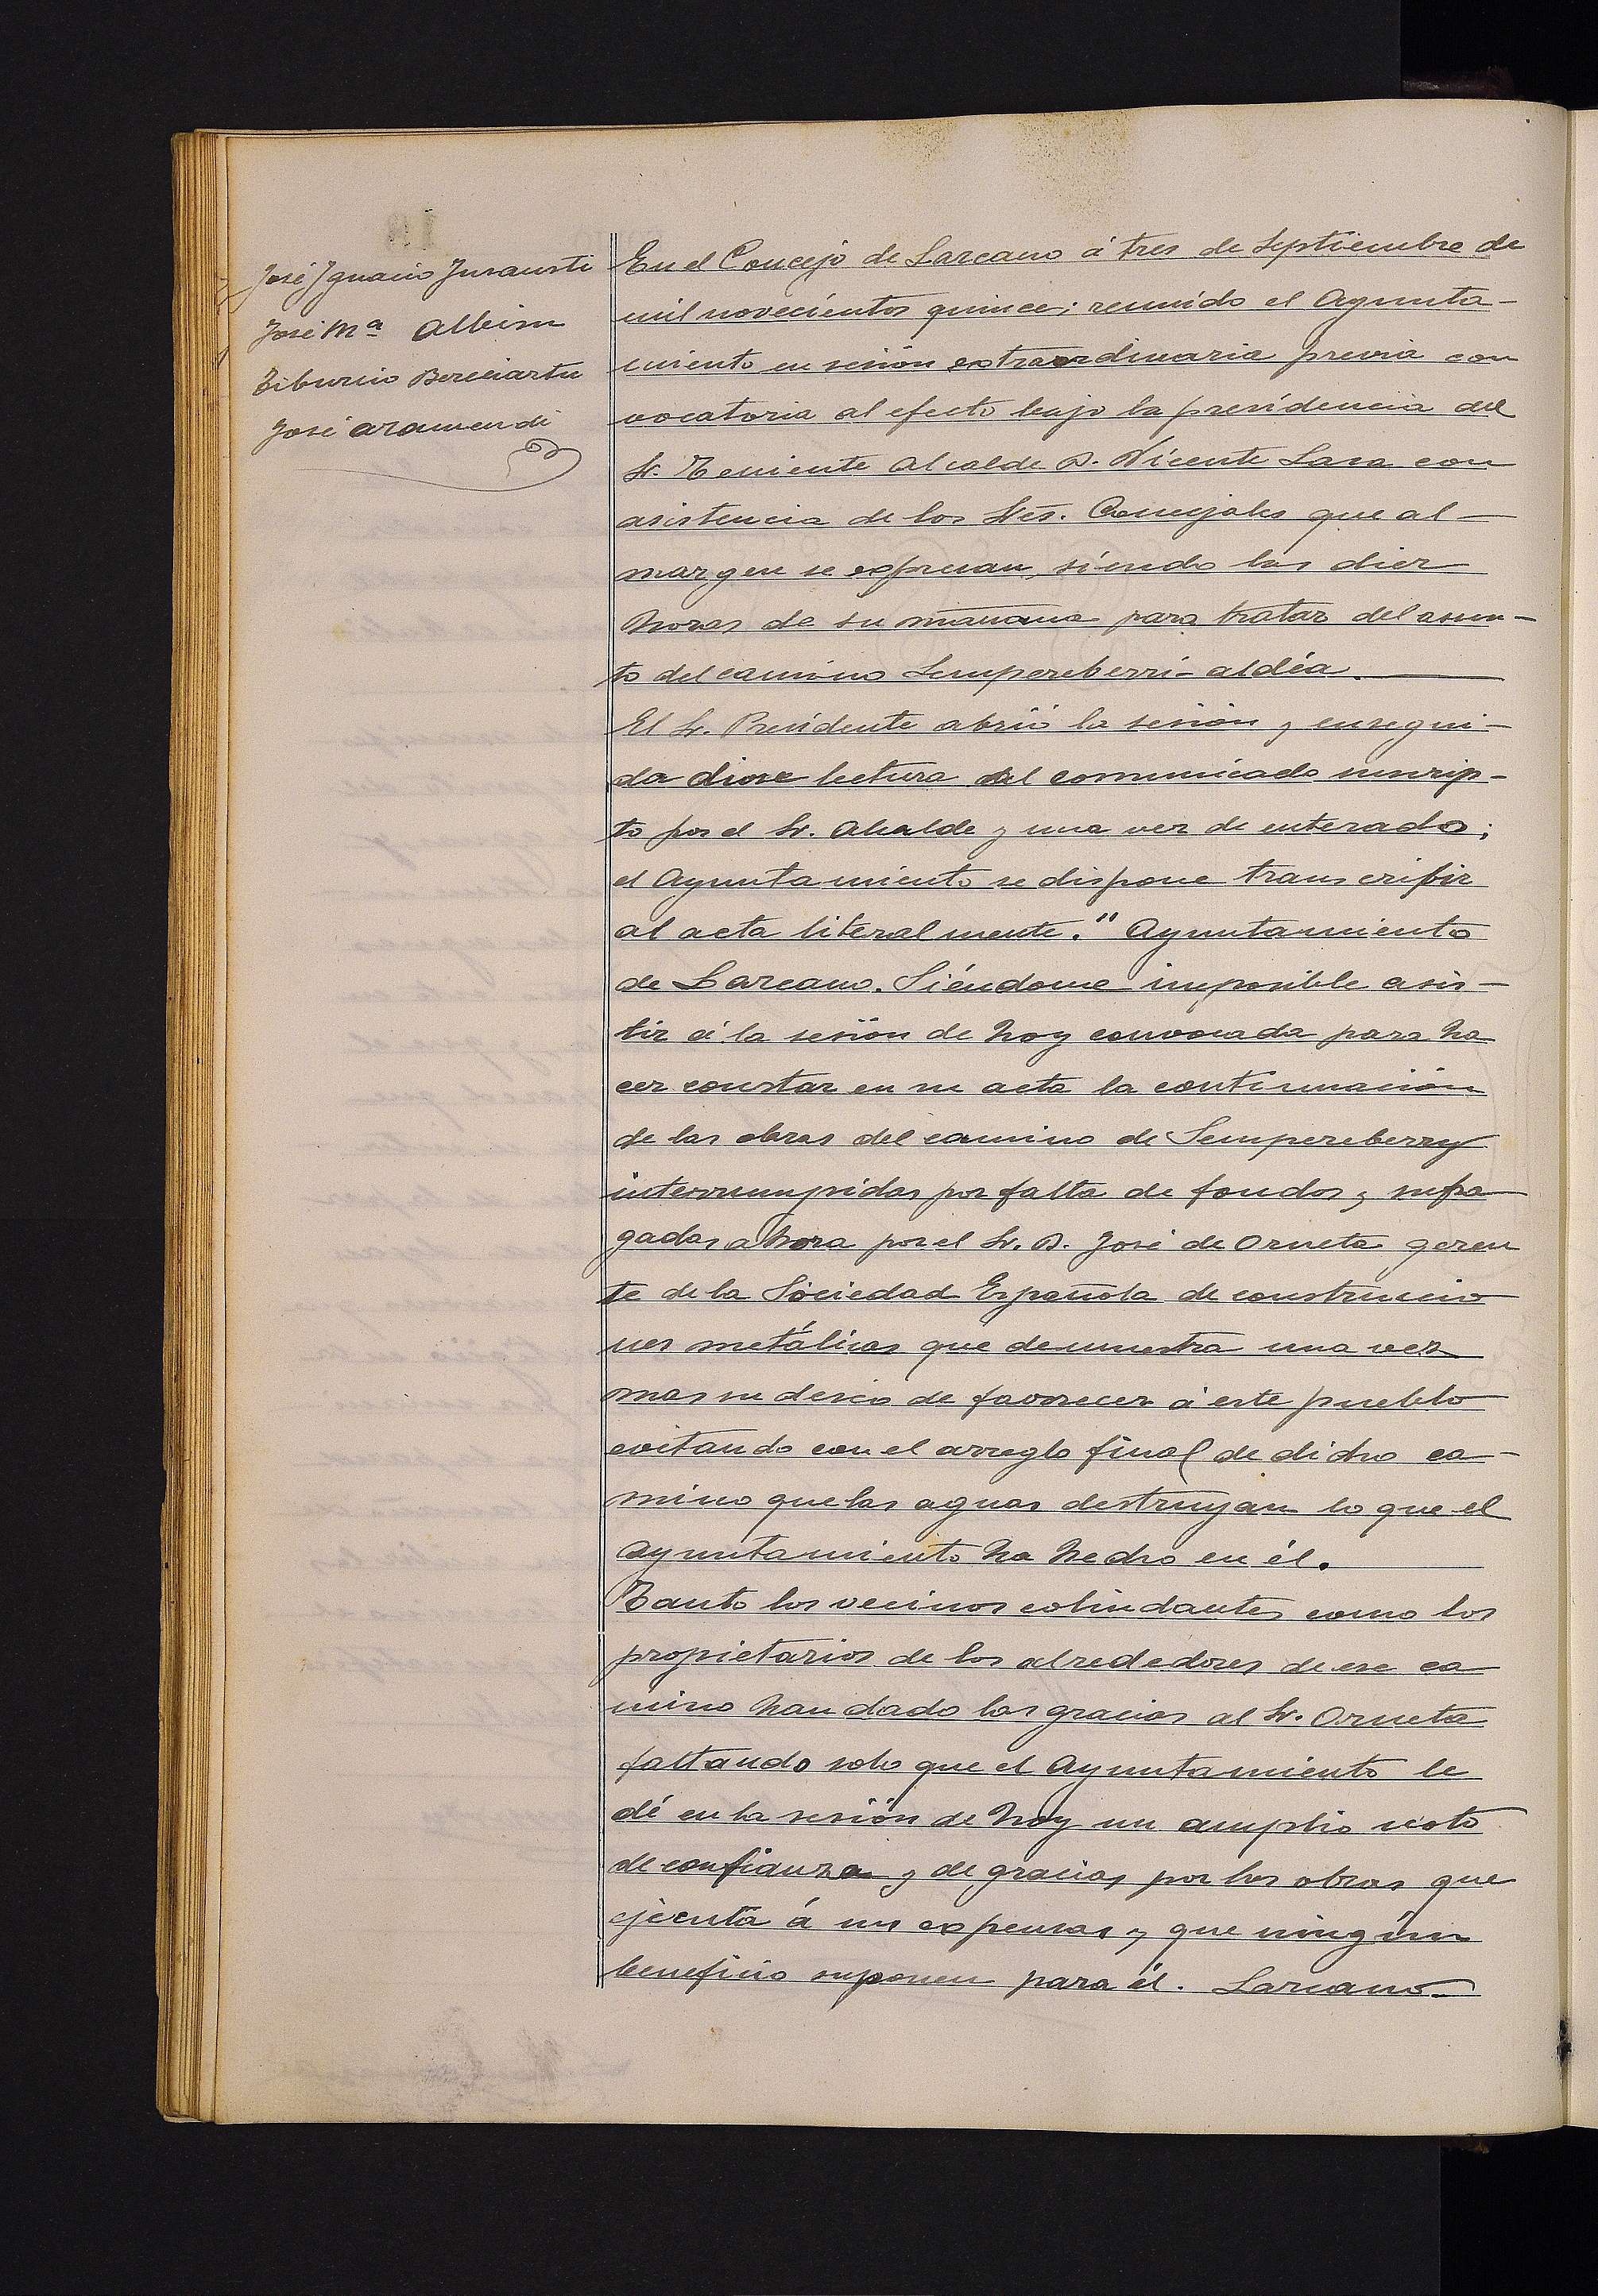 José Ignacio Insausti
José Mª Albisu
Tiburcio Bereciartu
José Aramendi
En el Concejo de Lazcano á tres de Septiembre de
mil novecientos quince; reunido el Ayunta-
miento en sesión extraordinaria previa con
vocatoria al efecto bajo la presidencia del
Sr. Teniente Alcalde D. Vicente Lasa con
asistencia de los Sres. Concejales que al-
margen se expresan, siendo las diez
horas de su mañana para tratar del asun-
to del camino Sempereberri-aldéa.
El Sr. Presidente abrió la sesión y ensegui-
da diose lectura del comunicado suscrip-
to por el Sr. Alcalde y una vez de enterado;
el Ayuntamiento se dispone transcribir
al acta literalmente." Ayuntamiento
de Lazcano. Siéndome imposible asis-
tir á la sesión de hoy convocada para ha
cer constar en su acta la continuación
de las obras del camino de Sempereberry
interrumpidas por falta de fondos y sufra
gadas ahora por el Sr. D. José de Orueta geren
te de la Sociedad Española de construccio
nes metálicas que demuestra una vez
mas su deseo de favorecer á este pueblo
evitando con el arreglo final de dicho ca-
mino que las aguas destruyan lo que el
Ayuntamiento ha hecho en él.
Tanto los vecinos colindantes como los
propietarios de los alrededores de ese ca
mino han dado las gracias al Sr. Orueta
faltando solo que el Ayuntamiento le
dé en la sesión de hoy un amplio voto
de confianza y de gracias por las obras que
ejecuta á sus expensas y que ningún
beneficio suponen para él. Lazcano